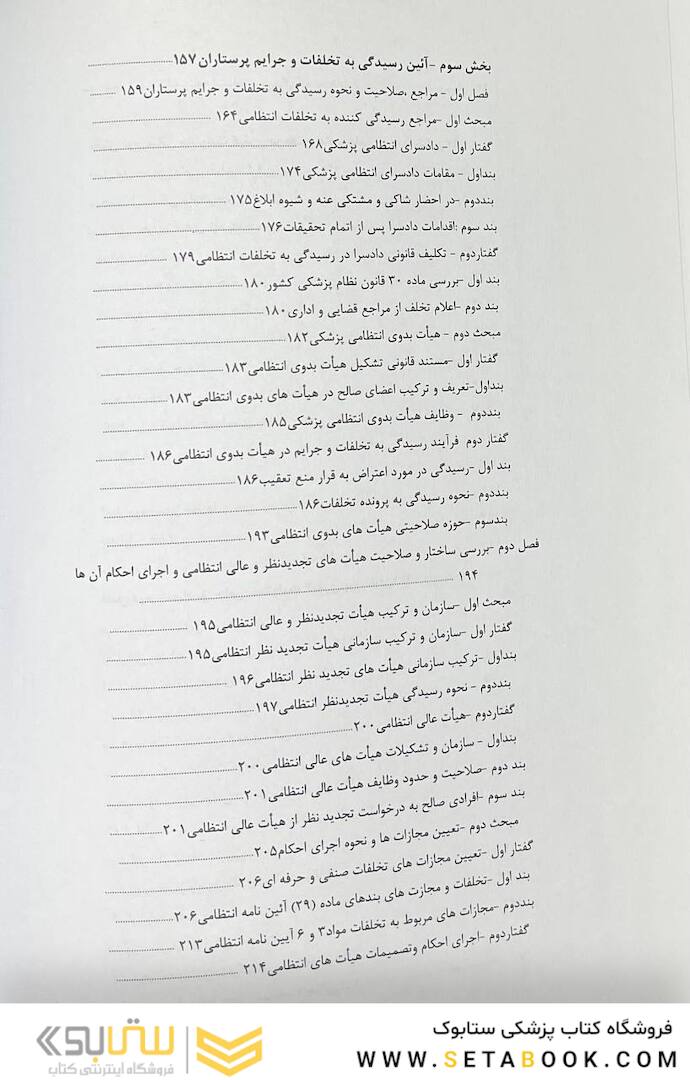 بخش سوم -آئین رسیدگی به تخلفات و جرایم پرستاران۱۵۷
فصل اول - مراجع ،صلاحیت و نحوه رسیدگی به تخلفات و جرایم پرستاران۱۵۹
مبحث اول -مراجع رسیدگی کننده به تخلفات انتظامی۱۶۴
گفتار اول - دادسرای انتظامی پزشکی۱۶۸
بنداول - مقامات دادسرای انتظامی پزشکی۱۷۴
بنددوم -در احضار شاکی و مشتکی عنه و شیوه ابلاغ۱۷۵
بند سوم :اقدامات دادسرا پس از اتمام تحقیقات۱۷۶
گفتاردوم - تکلیف قانونی دادسرا در رسیدگی به تخلفات انتظامی۱۷۹
بند اول -بررسی ماده ۳۰ قانون نظام پزشکی کشور۱۸۰
بند دوم -اعلام تخلف از مراجع قضایی و اداری۱۸۰
مبحث دوم - هیأت بدوی انتظامی پزشکی۱۸۲
گفتار اول -مستند قانونی تشکیل هیأت بدوی انتظامی۱۸۳
بنداول-تعریف و ترکیب اعضای صالح در هیأت های بدوی انتظامی۱۸۳
بنددوم - وظایف هیأت بدوی انتظامی پزشکی۱۸۵
گفتار دوم فرآیند رسیدگی به تخلفات و جرایم در هیأت بدوی انتظامی۱۸۶
بند اول -رسیدگی در مورد اعتراض به قرار منع تعقیب۱۸۶
بنددوم -نحوه رسیدگی به پرونده تخلفات۱۸۶
بندسوم -حوزه صلاحیتی هیأت های بدوی انتظامی۱۹۳
فصل دوم -بررسی ساختار و صلاحیت هیأت های تجدیدنظر و عالی انتظامی و اجرای احکام آن ها
۱۹۴
مبحث اول -سازمان و ترکیب هیأت تجدیدنظر و عالی انتظامی۱۹۵
گفتار اول -سازمان و ترکیب سازمانی هیأت تجدید نظر انتظامی۱۹۵
بنداول -ترکیب سازمانی هیأت های تجدید نظر انتظامی۱۹۶
بنددوم - نحوه رسیدگی هیأت تجدیدنظر انتظامی۱۹۷
گفتاردوم -هیأت عالی انتظامی۲۰۰
بنداول - سازمان و تشکیلات هیأت های عالی انتظامی۲۰۰
بند دوم -صلاحیت و حدود وظایف هیأت عالی انتظامی۲۰۱
بند سوم -افرادی صالح به درخواست تجدید نظر از هیأت عالی انتظامی۲۰۱
مبحث دوم -تعیین مجازات ها و نحوه اجرای احکام۲۰۵
گفتار اول -تعیین مجازات های تخلفات صنفی و حرفه ای۲۰۶
بند اول -تخلفات و مجازت های بندهای ماده (۲۹) آئین نامه انتظامی۲۰۶
بنددوم -مجازات های مربوط به تخلفات مواد۳ و ۶ آیین نامه انتظامی۲۱۳
گفتاردوم -اجرای احکام وتصمیمات هیأت های انتظامی۲۱۴
فروشگاه کتاب پزشکی ستابوک
WWW.SETABOOK.COM
ستابوک
فروشگاه اینترنتی کتاب